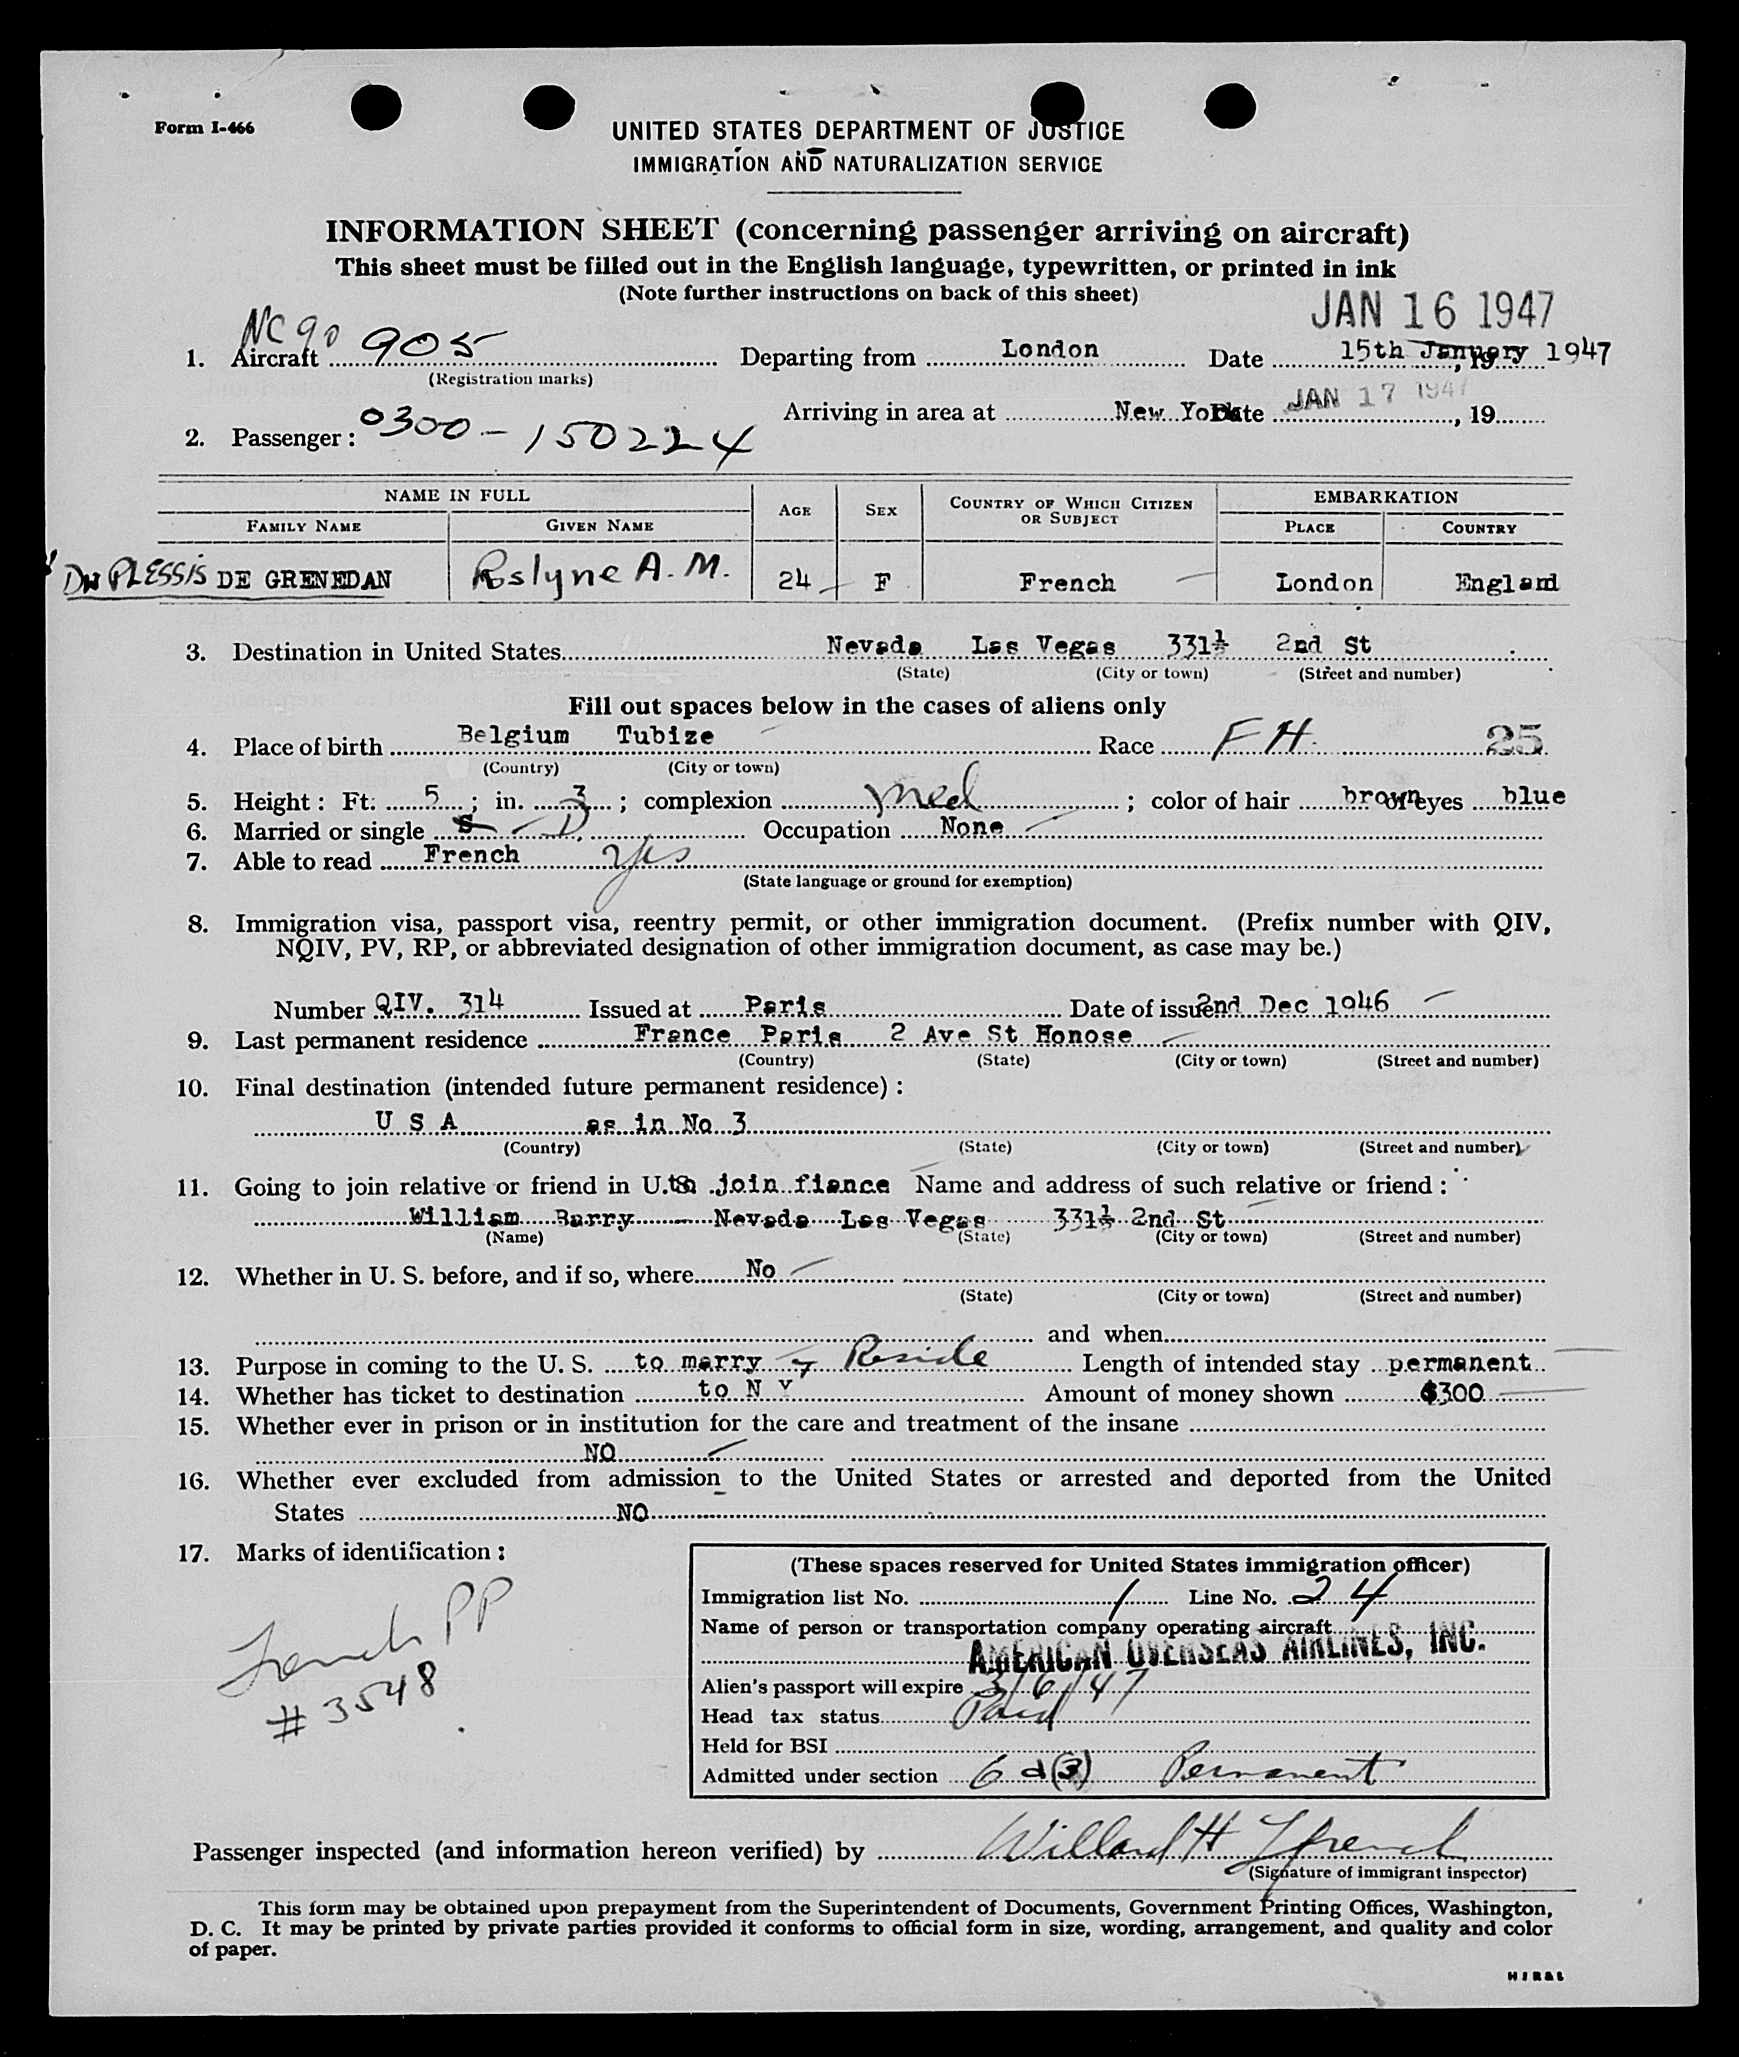 Form I-466
UNITED STATES DEPARTMENT OF JUSTICE
IMMIGRATION AND NATURALIZATION SERVICE
INFORMATION SHEET (concerning passenger arriving on aircraft)
This sheet must be filled out in the English language, typewritten, or printed in ink
(Note further instructions on back of this sheet)
JAN 16 1947
NC 90
1. Aircraft 905 Departing from London Date 15th January, 19 1947
(Registration marks)
Arriving in area at New York Date JAN 17 1947, 19
2. Passenger: 0300-150224
NAME IN FULL AGE SEX COUNTRY OF WHICH CITIZEN OR SUBJECT EMBARKATION
FAMILY NAME GIVEN NAME PLACE COUNTRY
Du PLESSIS DE GRENEDAN Roslyne A. M. 24 F French London England
3. Destination in United States Nevada Las Vegas 331½ 2nd St
(State) (City or town) (Street and number)
Fill out spaces below in the cases of aliens only
4. Place of birth Belgium Tubize Race F H. 25
(Country) (City or town)
5. Height: Ft. 5; in. 3; complexion Med; color of hair brown of eyes blue
6. Married or single S D. Occupation None
7. Able to read French Yes
(State language or ground for exemption)
8. Immigration visa, passport visa, reentry permit, or other immigration document. (Prefix number with QIV,
NQIV, PV, RP, or abbreviated designation of other immigration document, as case may be.)
Number QIV. 314 Issued at Paris Date of issue 2nd Dec 1946
9. Last permanent residence France Paris 2 Ave St Honose
(Country) (State) (City or town) (Street and number)
10. Final destination (intended future permanent residence):
U S A as in No 3
(Country) (State) (City or town) (Street and number)
11. Going to join relative or friend in U.S. to join fiance Name and address of such relative or friend:
William Barry Nevada Las Vegas 331½ 2nd St
(Name) (State) (City or town) (Street and number)
12. Whether in U. S. before, and if so, where No
(State) (City or town) (Street and number)
and when
13. Purpose in coming to the U. S. to marry & Reside Length of intended stay permanent
14. Whether has ticket to destination to N Y Amount of money shown $300
15. Whether ever in prison or in institution for the care and treatment of the insane
NO
16. Whether ever excluded from admission to the United States or arrested and deported from the United
States NO
17. Marks of identification:
French PP
# 3548
(These spaces reserved for United States immigration officer)
Immigration list No. 1 Line No. 24
Name of person or transportation company operating aircraft
AMERICAN OVERSEAS AIRLINES, INC.
Alien's passport will expire 3/6/47
Head tax status Paid
Held for BSI
Admitted under section 6 d(3) Permanent
Passenger inspected (and information hereon verified) by Willard H French
(Signature of immigrant inspector)
This form may be obtained upon prepayment from the Superintendent of Documents, Government Printing Offices, Washington,
D. C. It may be printed by private parties provided it conforms to official form in size, wording, arrangement, and quality and color
of paper.